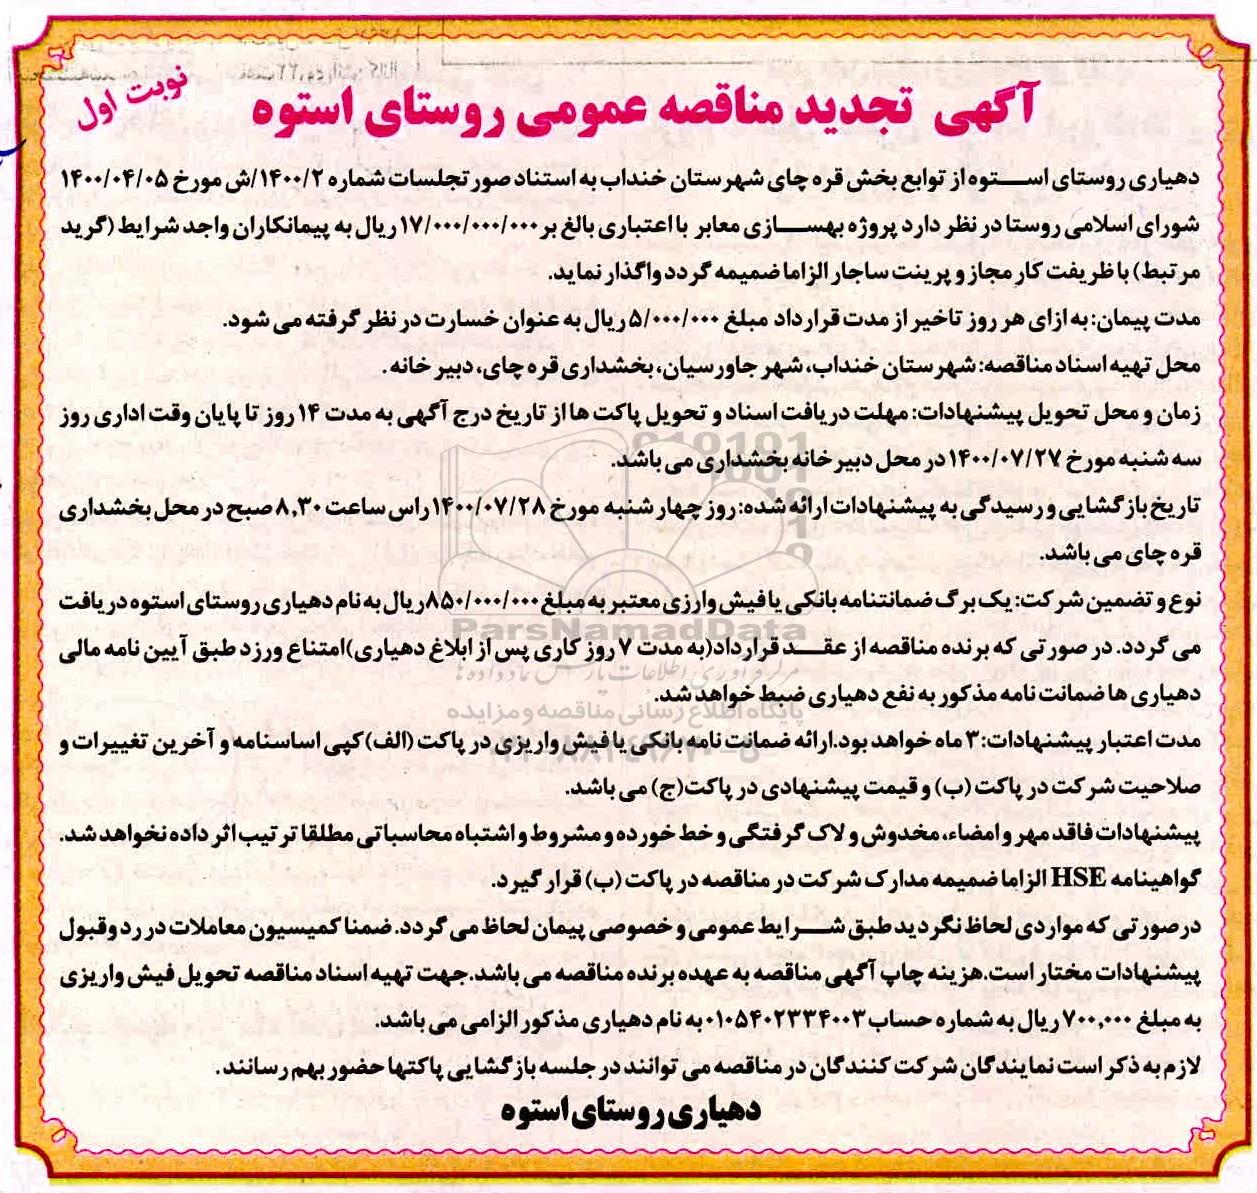 نوبت اول
آگهی تجدید مناقصه عمومی روستای استوه
دهیاری روستای استوه از توابع بخش قره چای شهرستان خنداب به استناد صورتجلسات شماره ۱۴۰۰/۲/ش مورخ ۱۴۰۰/۰۴/۰۵
شورای اسلامی روستا در نظر دارد پروژه بهسازی معابر با اعتباری بالغ بر ۱۷/۰۰۰/۰۰۰/۰۰۰ ریال به پیمانکاران واجد شرایط (گرید
مرتبط) با ظریفت کار مجاز و پرینت ساجار الزاما ضمیمه گردد واگذار نماید.
مدت پیمان: به ازای هر روز تاخیر از مدت قرارداد مبلغ ۵/۰۰۰/۰۰۰ ریال به عنوان خسارت در نظر گرفته می شود.
محل تهیه اسناد مناقصه: شهرستان خنداب، شهر جاورسیان، بخشداری قره چای، دبیرخانه.
زمان و محل تحویل پیشنهادات: مهلت دریافت اسناد و تحویل پاکت ها از تاریخ درج آگهی به مدت ۱۴ روز تا پایان وقت اداری روز
سه شنبه مورخ ۱۴۰۰/۰۷/۲۷ در محل دبیرخانه بخشداری می باشد.
تاریخ بازگشایی و رسیدگی به پیشنهادات ارائه شده: روز چهارشنبه مورخ ۱۴۰۰/۰۷/۲۸ راس ساعت ۸,۳۰ صبح در محل بخشداری
قره چای می باشد.
نوع و تضمین شرکت: یک برگ ضمانتنامه بانکی یا فیش وارزی معتبر به مبلغ ۸۵۰/۰۰۰/۰۰۰ ریال به نام دهیاری روستای استوه دریافت
می گردد. در صورتی که برنده مناقصه از عقد قرارداد(به مدت ۷ روز کاری پس از ابلاغ دهیاری)امتناع ورزد طبق آیین نامه مالی
دهیاری ها ضمانت نامه مذکور به نفع دهیاری ضبط خواهد شد.
مدت اعتبار پیشنهادات: ۳ ماه خواهد بود.ارائه ضمانت نامه بانکی یا فیش واریزی در پاکت (الف)کپی اساسنامه و آخرین تغییرات و
صلاحیت شرکت در پاکت (ب) و قیمت پیشنهادی در پاکت(ج) می باشد.
پیشنهادات فاقد مهر و امضاء، مخدوش و لاک گرفتگی و خط خورده و مشروط و اشتباه محاسباتی مطلقا ترتیب اثر داده نخواهد شد.
گواهینامه HSE الزاما ضمیمه مدارک شرکت در مناقصه در پاکت (ب) قرار گیرد.
درصورتی که مواردی لحاظ نگردید طبق شرایط عمومی و خصوصی پیمان لحاظ می گردد. ضمنا کمیسیون معاملات در رد وقبول
پیشنهادات مختار است.هزینه چاپ آگهی مناقصه به عهده برنده مناقصه می باشد.جهت تهیه اسناد مناقصه تحویل فیش واریزی
به مبلغ ۷۰۰,۰۰۰ ریال به شماره حساب ۰۱۰۵۴۰۲۳۳۴۰۰۳ به نام دهیاری مذکور الزامی می باشد.
لازم به ذکر است نمایندگان شرکت کنندگان در مناقصه می توانند در جلسه بازگشایی پاکتها حضور بهم رسانند.
دهیاری روستای استوه
ParsNamadData
مرکز فرآوری اطلاعات پارس نماد داده ها
پایگاه اطلاع رسانی مناقصه و مزایده